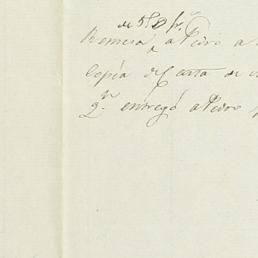 Remesa a Pedro a
Copia de Carta de
qn. entregó a Pedro